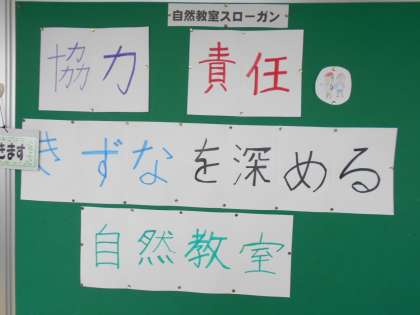 自然教室スローガン
協力 責任
きます
きずなを深める
自然教室